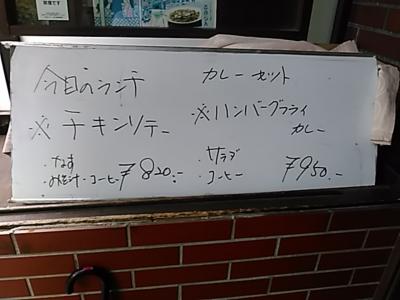 今日のランチ
※チキンソテー
・なす
・みそ汁・コーヒー ¥820.-
カレーセット
※ハンバーグフライ
カレー
・サラダ
・コーヒー ¥950.-